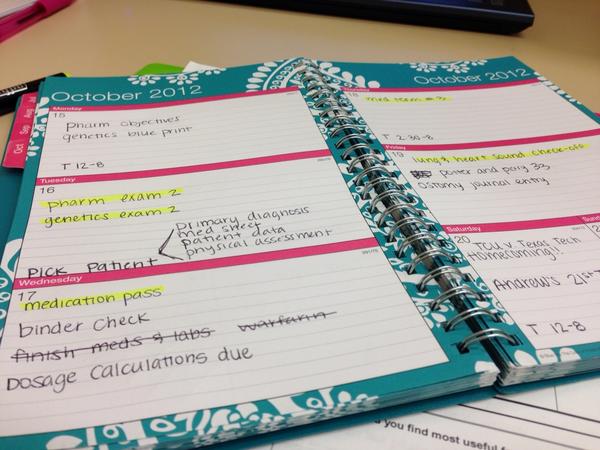 October 2012
Monday
15
Pharm objectives
genetics blue print
T 12-8
Tuesday
16
pharm exam 2
genetics exam 2
primary diagnosis
med sheet
patient data
physical assessment
PICK Patient
Wednesday
17
medication pass
binder check
finish meds & labs warfarin
Dosage calculations due
October 2012
18
med term #3
T 2:30-8
Friday
19
lung & heart sound check-off
potter and perry 33
ostomy journal entry
Saturday
20
TCU v. Texas Tech
Homecoming!!
Andrew's 21st
T 12-8
Oct Sep Aug Jul
you find most useful